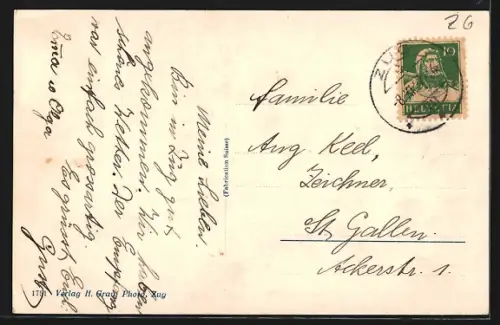 26
Meine Lieben.
Bin in Zug gut
angekommen. Wir haben
schönes Wetter. Der Empfang
war einfach grossartig
Es grüsst Euch
Emma u Olga
(Fabrication Suisse)
1791 Verlag H. Grau, Phot., Zug
ZUG
10
HELVETIA
Familie
Aug. Keel,
Zeichner,
St. Gallen.
Ackerstr. 1.